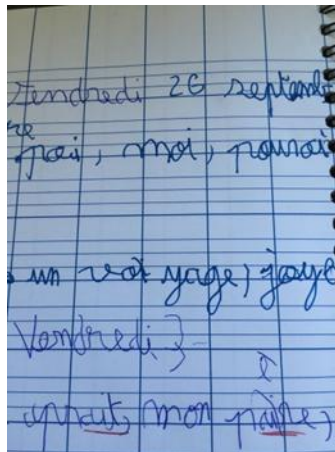 Vendredi 26 septemb
re
pai, moi, pouvoi
un voi yage, joye
Vendredi }
è
mon paire,